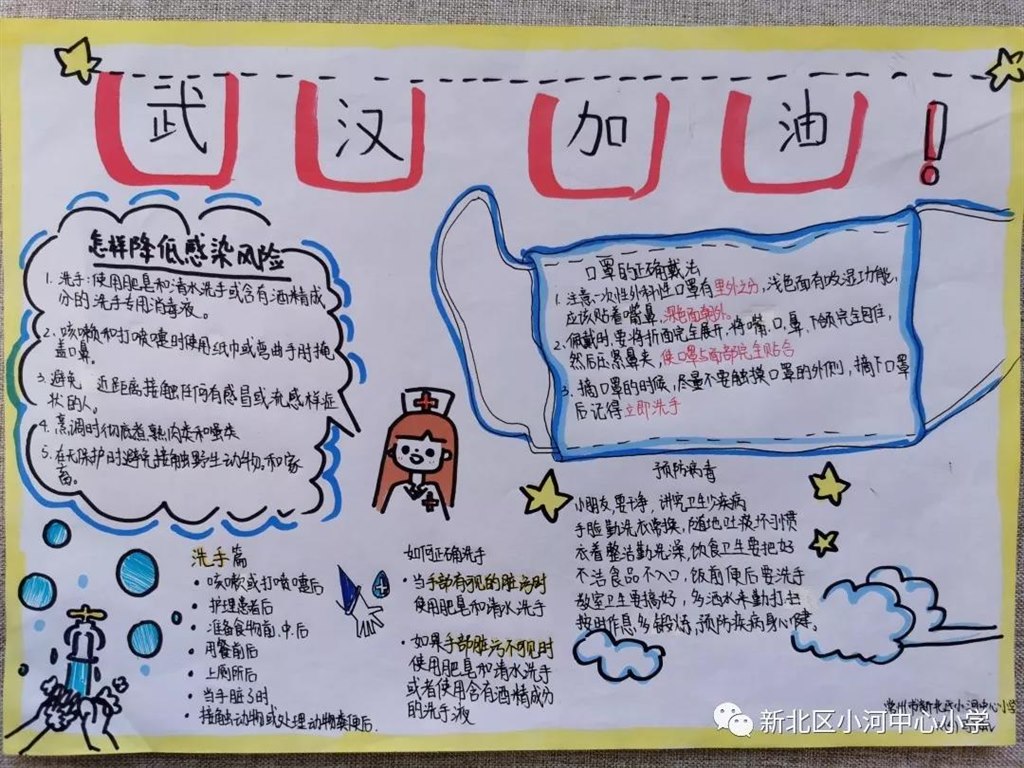 武汉加油!
怎样降低感染风险
1. 洗手:使用肥皂和清水洗手或含有酒精成
分的洗手专用消毒液。
2. 咳嗽和打喷嚏时使用纸巾或弯曲手肘掩
盖口鼻。
3. 避免 近距离接触任何有感冒或流感样症
状的人。
4. 烹调时彻底煮熟肉类和蛋类
5. 在无保护时避免接触野生动物和家
畜。
口罩的正确戴法
1. 注意一次性外科性口罩有里外之分,浅色面有吸湿功能,
应该贴着嘴鼻,深色面朝外。
2. 佩戴时,要将折面完全展开,将嘴、口、鼻、下颌完全包住,
然后压紧鼻夹,使口罩与面部完全贴合
3. 摘口罩的时候,尽量不要触摸口罩的外侧,摘下口罩
后记得立即洗手
预防病毒
小朋友,要干净,讲究卫生少疾病
手脸勤洗衣常换,随地吐痰坏习惯
衣着整洁勤洗澡,饮食卫生要把好
不洁食品不入口,饭前便后要洗手
教室卫生要搞好,多洒水来勤打扫
按时作息多锻炼,预防疾病身心健。
洗手篇
• 咳嗽或打喷嚏后
• 护理患者后
• 准备食物前.中.后
• 用餐前后
• 上厕所后
• 当手脏了时
• 接触动物或处理动物粪便后.
如何正确洗手
• 当手部有可见的脏污时
使用肥皂和清水洗手
• 如果手部脏污不可见时
使用肥皂和清水洗手
或者使用含有酒精成分
的洗手液
常州市新北区小河中心小学
新北区小河中心小学